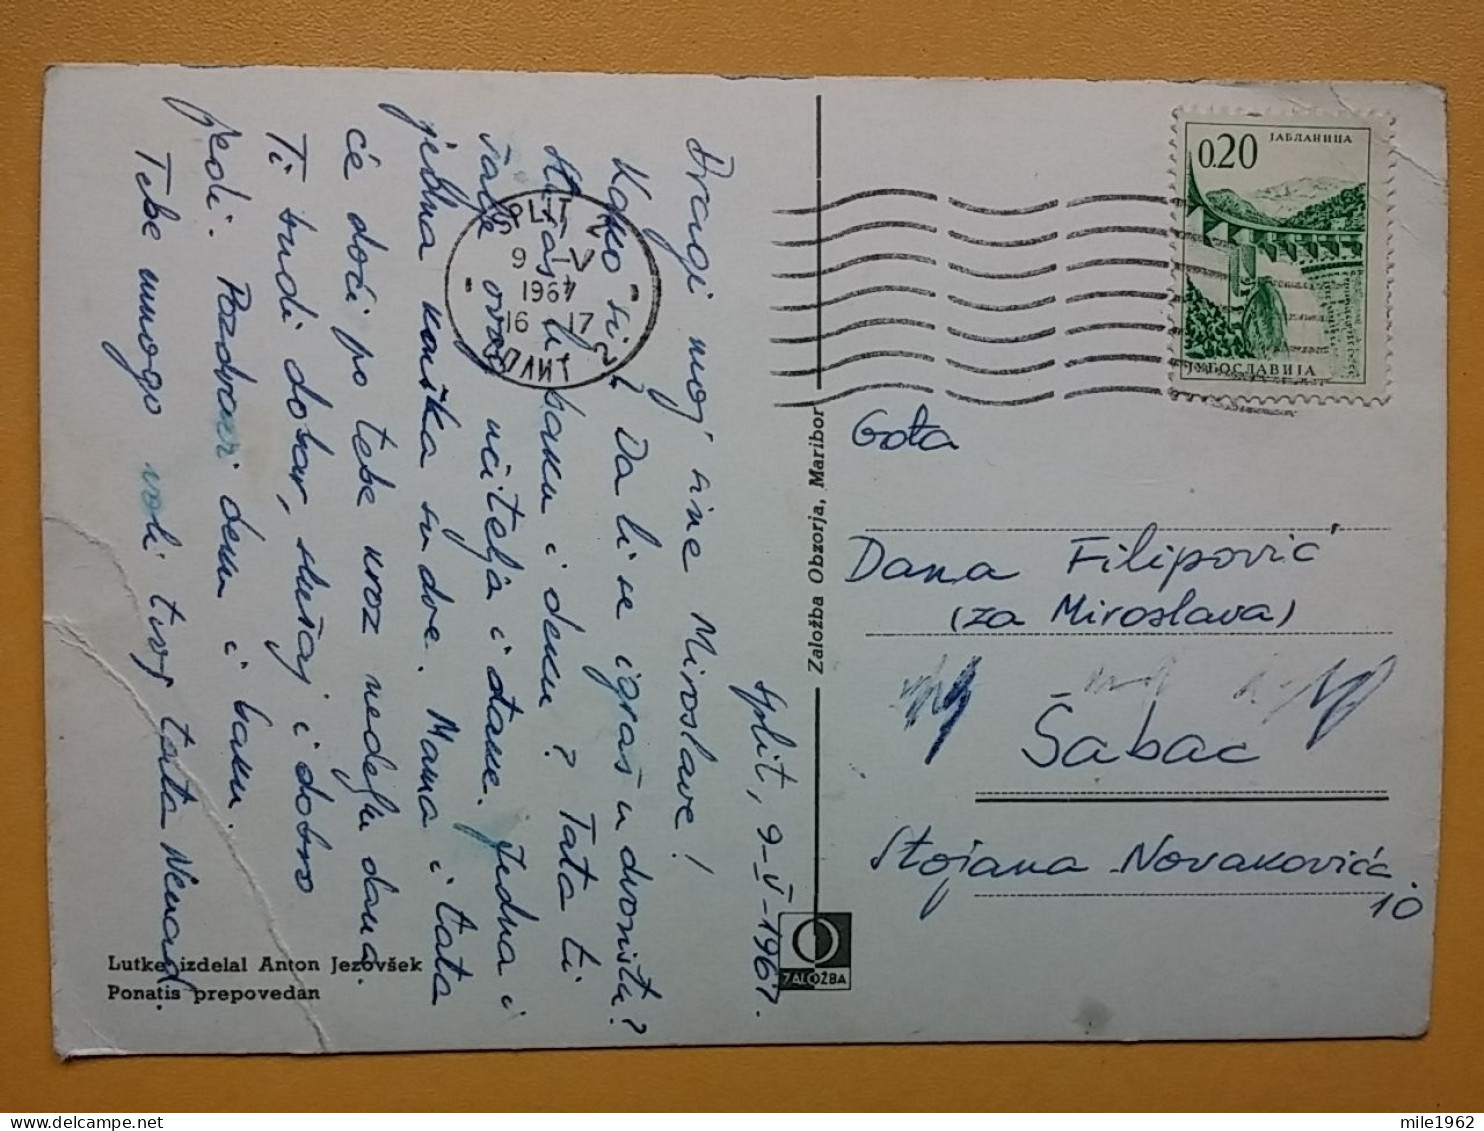 Split, 9-V-1967.
Dragi moj sine Miroslave!
Kako si? Da li se igraš u dvorištu?
Slušaš li baku i deku? Tata ti
šalje ovog učitelja i đake. Jedna i
jedna kaiška su dve. Mama i tata
će doći po tebe kroz nedelju dana.
Ti budi dobar, slušaj i dobro
jedi. Pozdravi deku i baku.
Tebe mnogo voli tvoj tata Nenad.
Lutke izdelal Anton Jezovšek
Ponatis prepovedan
SPLIT 2
9 V
1967
16 17
2
Založba Obzorja, Maribor
ZALOŽBA
0.20
ЈАБЛАНИЦА
ЈУГОСЛАВИЈА
Dana Filipović
(za Miroslava)
Šabac
Stojana Novakovića
10
mile1962